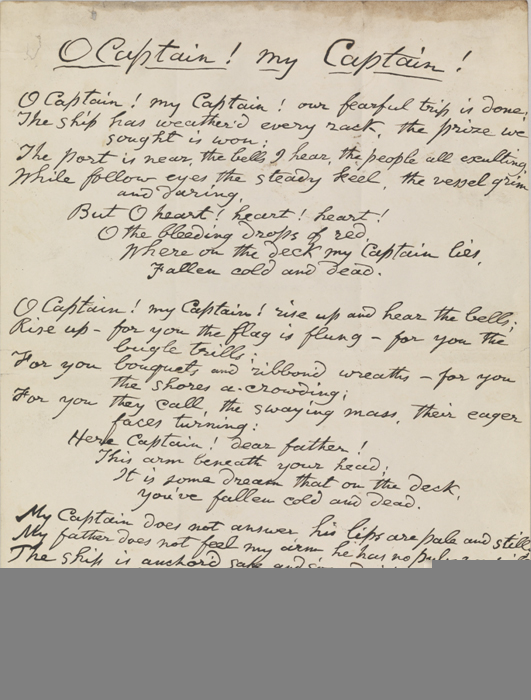 O Captain! my Captain!
O Captain! my Captain! our fearful trip is done,
The ship has weather'd every rack, the prize we
sought is won;
The port is near, the bells I hear, the people all exulting,
While follow eyes the steady keel, the vessel grim
and daring,
But O heart! heart! heart!
O the bleeding drops of red,
Where on the deck my Captain lies,
Fallen cold and dead.
O Captain! my Captain! rise up and hear the bells;
Rise up - for you the flag is flung - for you the
bugle trills;
For you bouquets and ribbond wreaths - for you
the shores a-crowding;
For you they call, the swaying mass, their eager
faces turning:
Here Captain! dear father!
This arm beneath your head;
It is some dream that on the deck,
You've fallen cold and dead.
My Captain does not answer his lips are pale and still
My father does not feel my arm he has no
The ship is anchor'd safe and